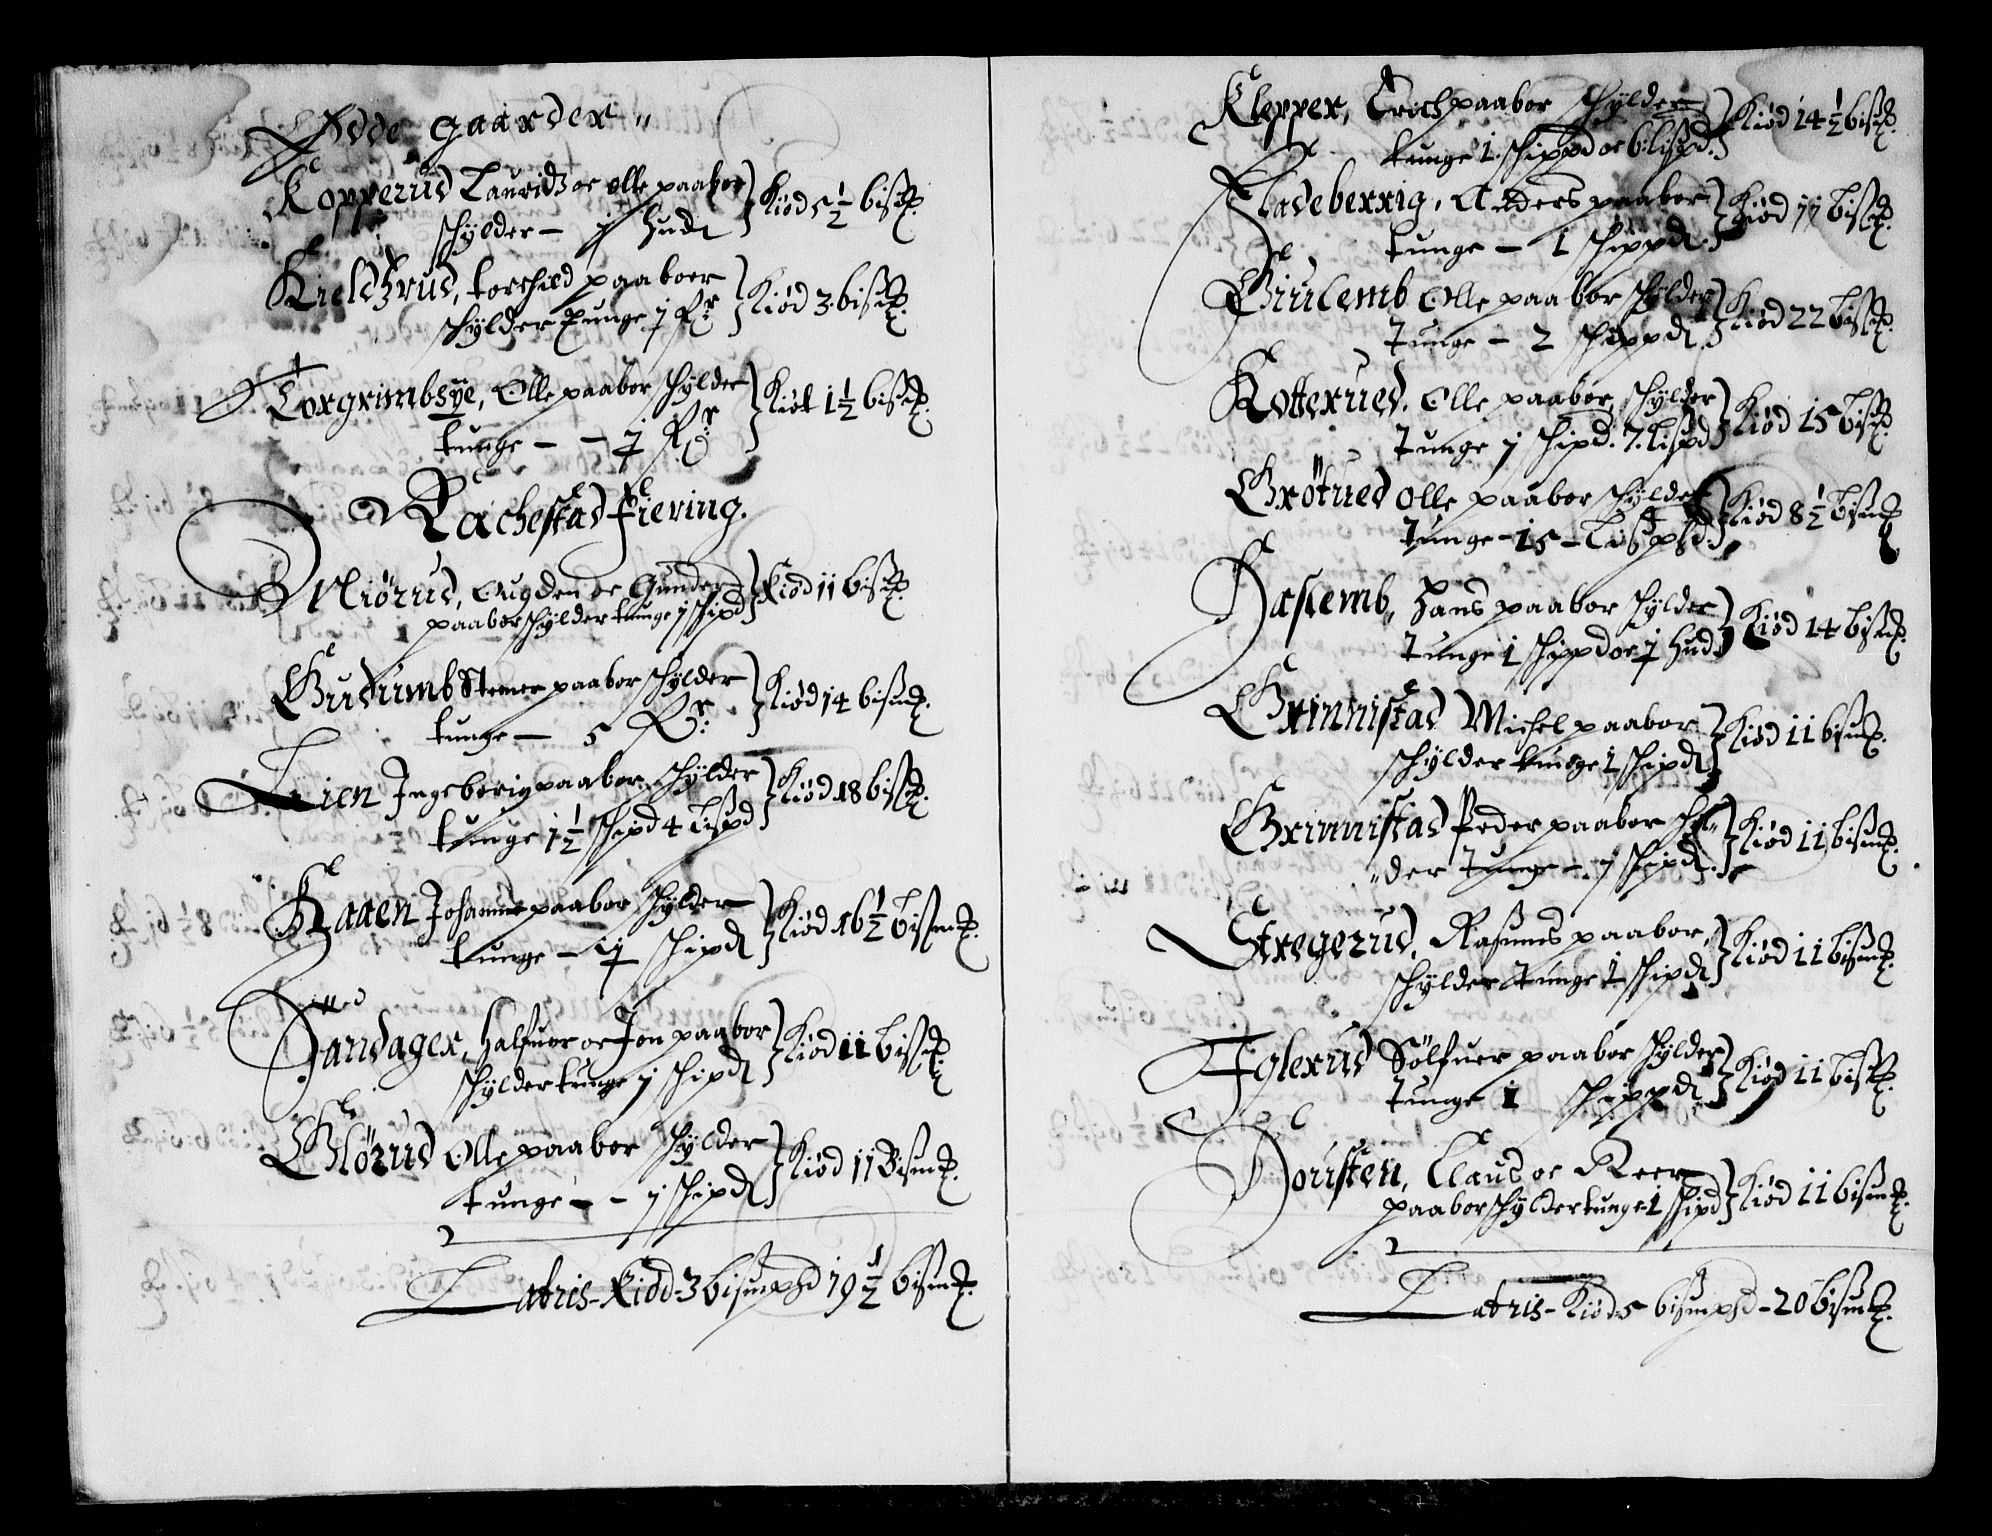 Øde gaarder
Kopperud Lauridz oc olle paabor
schylder — j Hud } Kiød 5½ bismk.
Kieldzrud, torchild paaboer
schylder tunge j Rr } Kiød 3 bismk.
Torgrimbsÿe, Olle paabor schylder
tunge — — j Rr } Kiøt 1½ bismk.
Rachestad fiering.
Miørud, Augden oc Gunder
paabor schylder tunge j schipd } Kiød 11 bismk.
Gudumb Stener paabor schylder
tunge — 5 Rr } Kiød 14 bismk.
Lien Ingeborig paabor schylder
tunge 1½ schipd 4 Lispd } Kiød 18 bismk.
Kaaen Johannes paabor schylder
tunge — schipd } Kiød 16½ bismk.
Sandager, Halfuor oc Jon paabor
schylder tunge j schipd } Kiød 11 bismk.
Glørud Olle paabor schylder
tunge — — j schipd } Kiød 11 Bismk.
Latris - Kiød - 3 bismpd 19½ bismk.
Klepper, Erich paabor schylder
tunge 1 schippd oc 6 lispd. } Kiød 14½ bismk.
Fladeberrig, Anders paabor
tunge — 1 schippd } Kiød 11 bismk.
Giulemb Olle paabor schylder
Tunge — 2 schippd } Kiød 22 bismk.
Kotterued, Olle paabor schylder
Tunge j schipd. 7. Lispd } Kiød 15 bismk.
Grøtued Olle paabor schylder
Tunge — 15 — Lispd. } Kiød 8½ bismk.
Haslemb, Hans paabor schylder
Tunge 1 schippd oc j Hud } Kiød 14 bismk.
Grinnistad Michel paabor
schylder tunge 1 schipd } Kiød 11 bismk.
Grinnistad Peder paabor schyl„
„der tunge — j schipd. } Kiød 11 bismk.
Stregerud, Rasmus paabor
schylder tunge 1 schipd } Kiød 11 bismk.
Iglerud Sølfuer paabor schylder
tunge 1 schippd } Kiød 11 bismk.
Houſten, Claus oc Reer
paabor schylder tunge 1 schipd } Kiød 11 bismk.
Latris - Kiød 5 bismpd - 20 bismk.